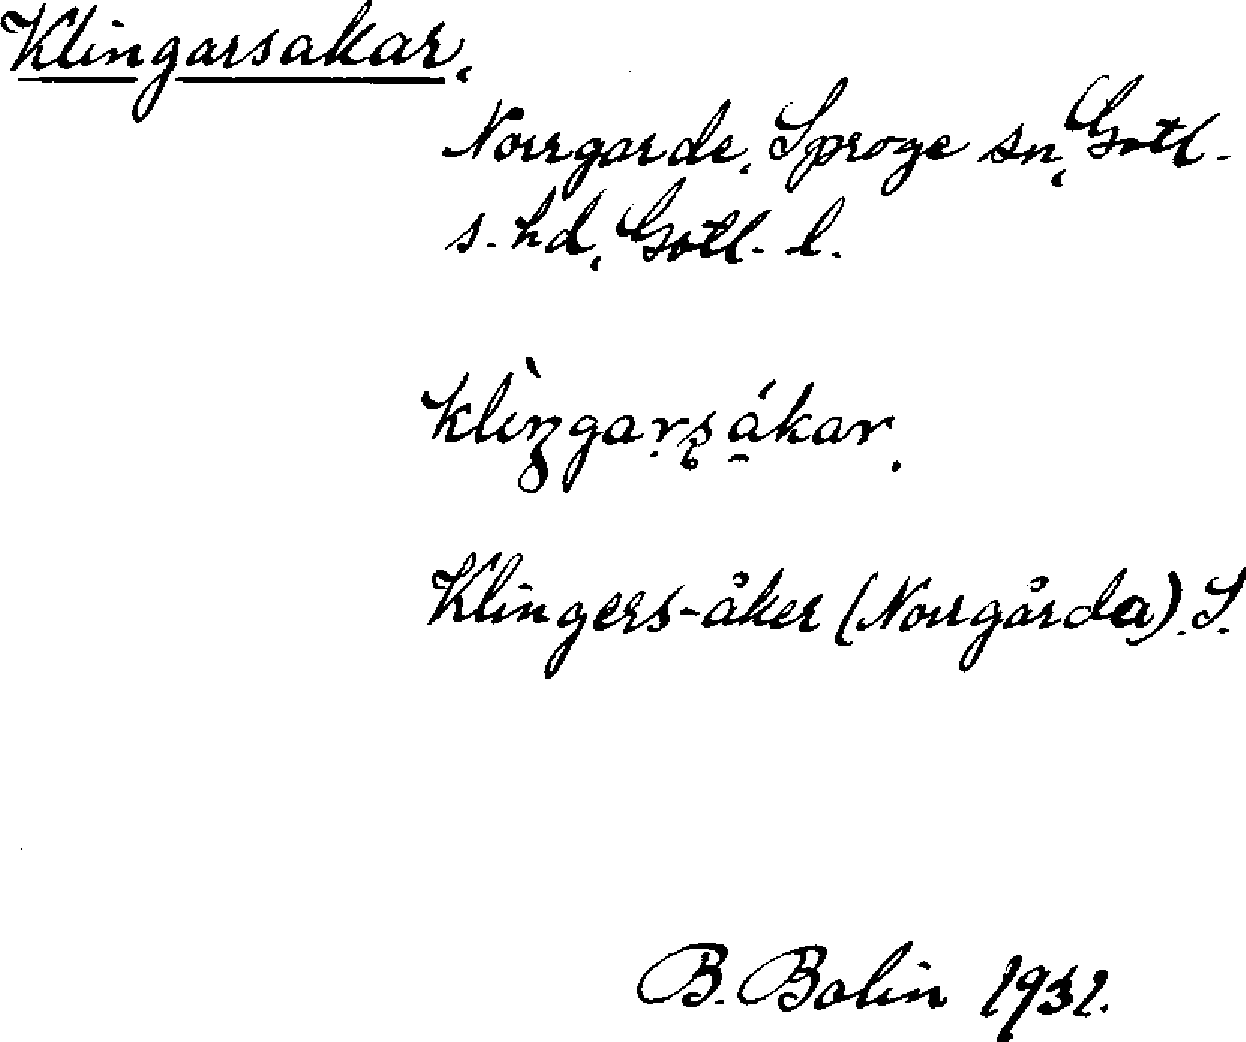 Klingarsakar.
Norrgarde, Sproge sn, Gotl.
s. hd, Gotl. l.
klìŋgarsákar.
Klingers-åker (Norrgårda). S.
B. Bolin 1931.